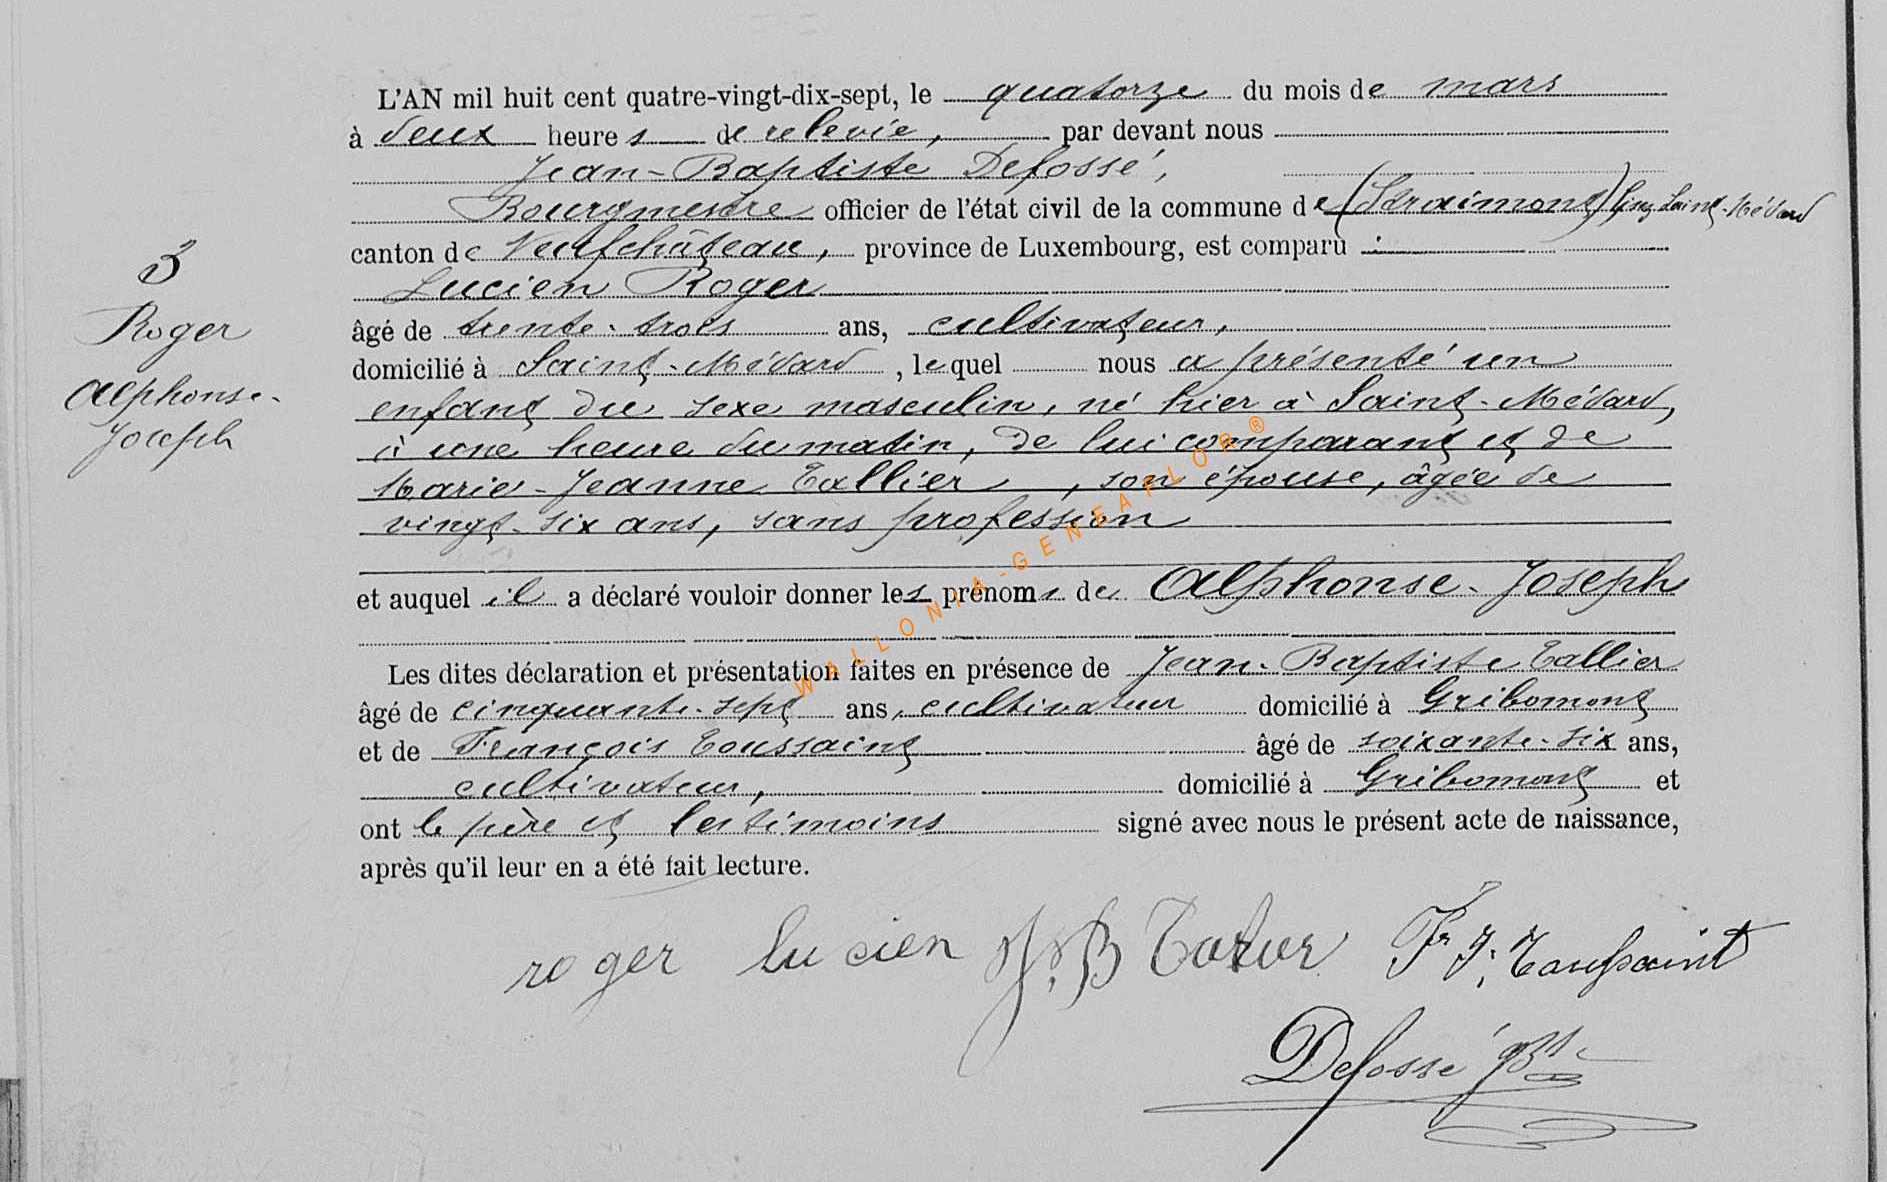 L'AN mil huit cent quatre-vingt-dix-sept, le quatorze du mois de mars
à deux heures de relevée, par devant nous
Jean-Baptiste Defossé,
Bourgmestre officier de l'état civil de la commune de (Straimont) Saint-Médard
canton de Neufchâteau, province de Luxembourg, est comparu :
Lucien Roger
âgé de trente-trois ans, cultivateur,
domicilié à Saint-Médard, lequel nous a présenté un
enfant du sexe masculin, né hier à Saint-Médard,
à une heure du matin, de lui comparant et de
Marie-Jeanne Tallier, son épouse, âgée de
vingt-six ans, sans profession
et auquel il a déclaré vouloir donner les prénoms de Alphonse-Joseph
Les dites déclaration et présentation faites en présence de Jean-Baptiste Tallier
âgé de cinquante-sept ans, cultivateur domicilié à Gribomont
et de François Toussaint âgé de soixante-six ans,
cultivateur, domicilié à Gribomont et
ont le père et les témoins signé avec nous le présent acte de naissance,
après qu'il leur en a été fait lecture.
3
Roger
Alphonse-
Joseph
roger lucien J. B Fr J. Toussaint
Defossé JBte
WALLONIA-GENEAFLOR®